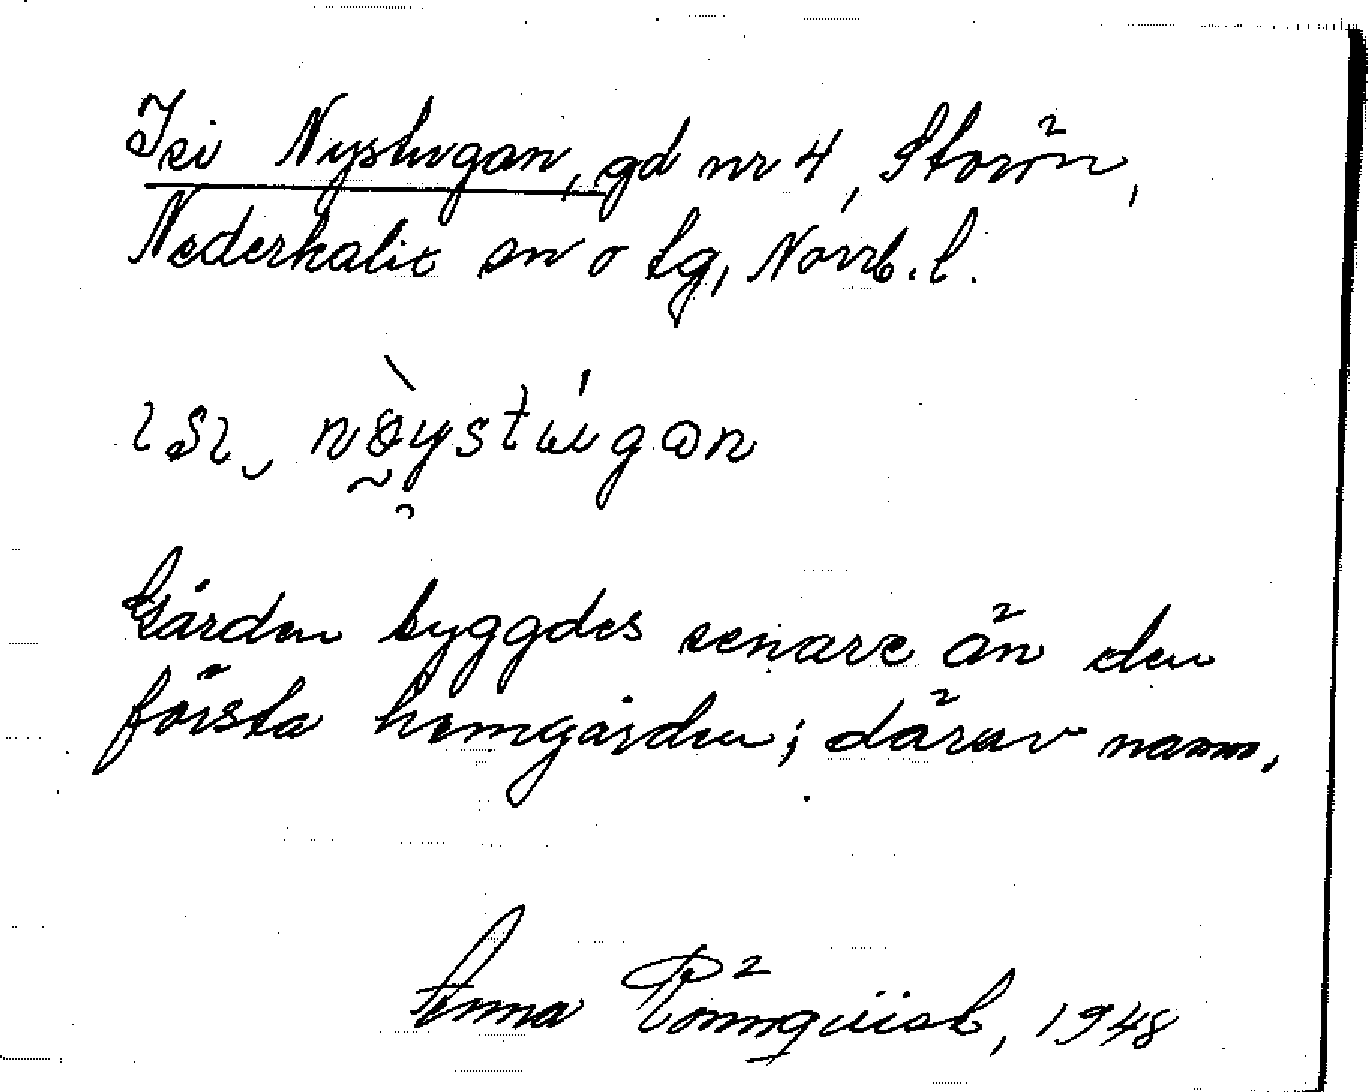 Isi Nystugan, gd nr 4, Storön,
Nederkalix sn o tg, Norrb. l.
ısı, nøystúgɑn
Gården byggdes senare än den
första hemgården; därav namn.
Anna Rönnqvist, 1948